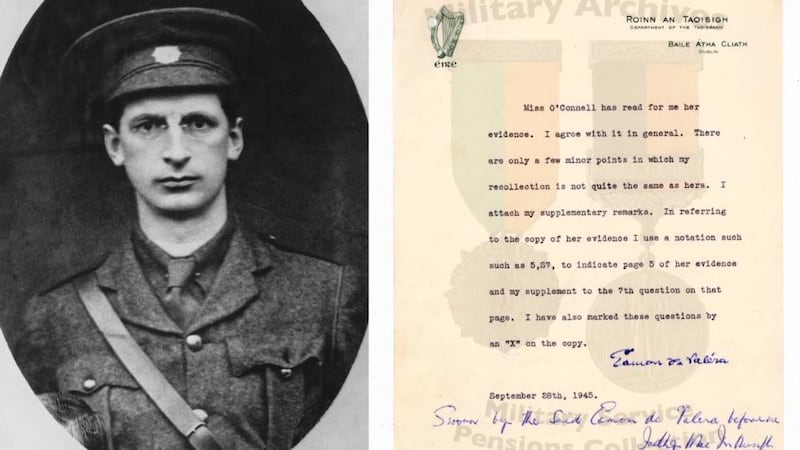 Military Archives
ROINN AN TAOISIGH
DEPARTMENT OF THE TAOISEACH
BAILE ÁTHA CLIATH
DUBLIN
éire
Miss O'Connell has read for me her
evidence. I agree with it in general. There
are only a few minor points in which my
recollection is not quite the same as hers. I
attach my supplementary remarks. In referring
to the copy of her evidence I use a notation such
such as 5,S7, to indicate page 5 of her evidence
and my supplement to the 7th question on that
page. I have also marked these questions by
an "X" on the copy.
Eamon de Valéra
September 28th, 1945.
Sworn by the said Eamon de Valera before me
Military Service
Pensions Collection